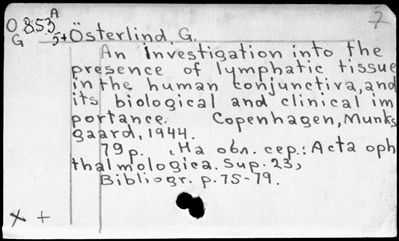 O 853 A
G 5+ Österlind, G.
An investigation into the
presence of lymphatic tissue
in the human conjunctiva, and
its biological and clinical im
portance. Copenhagen, Munks
gaard, 1944.
79 p. , На обл. сер.: Acta oph
thalmologica. Sup. 23,
Bibliogr. p. 75-79.
x +